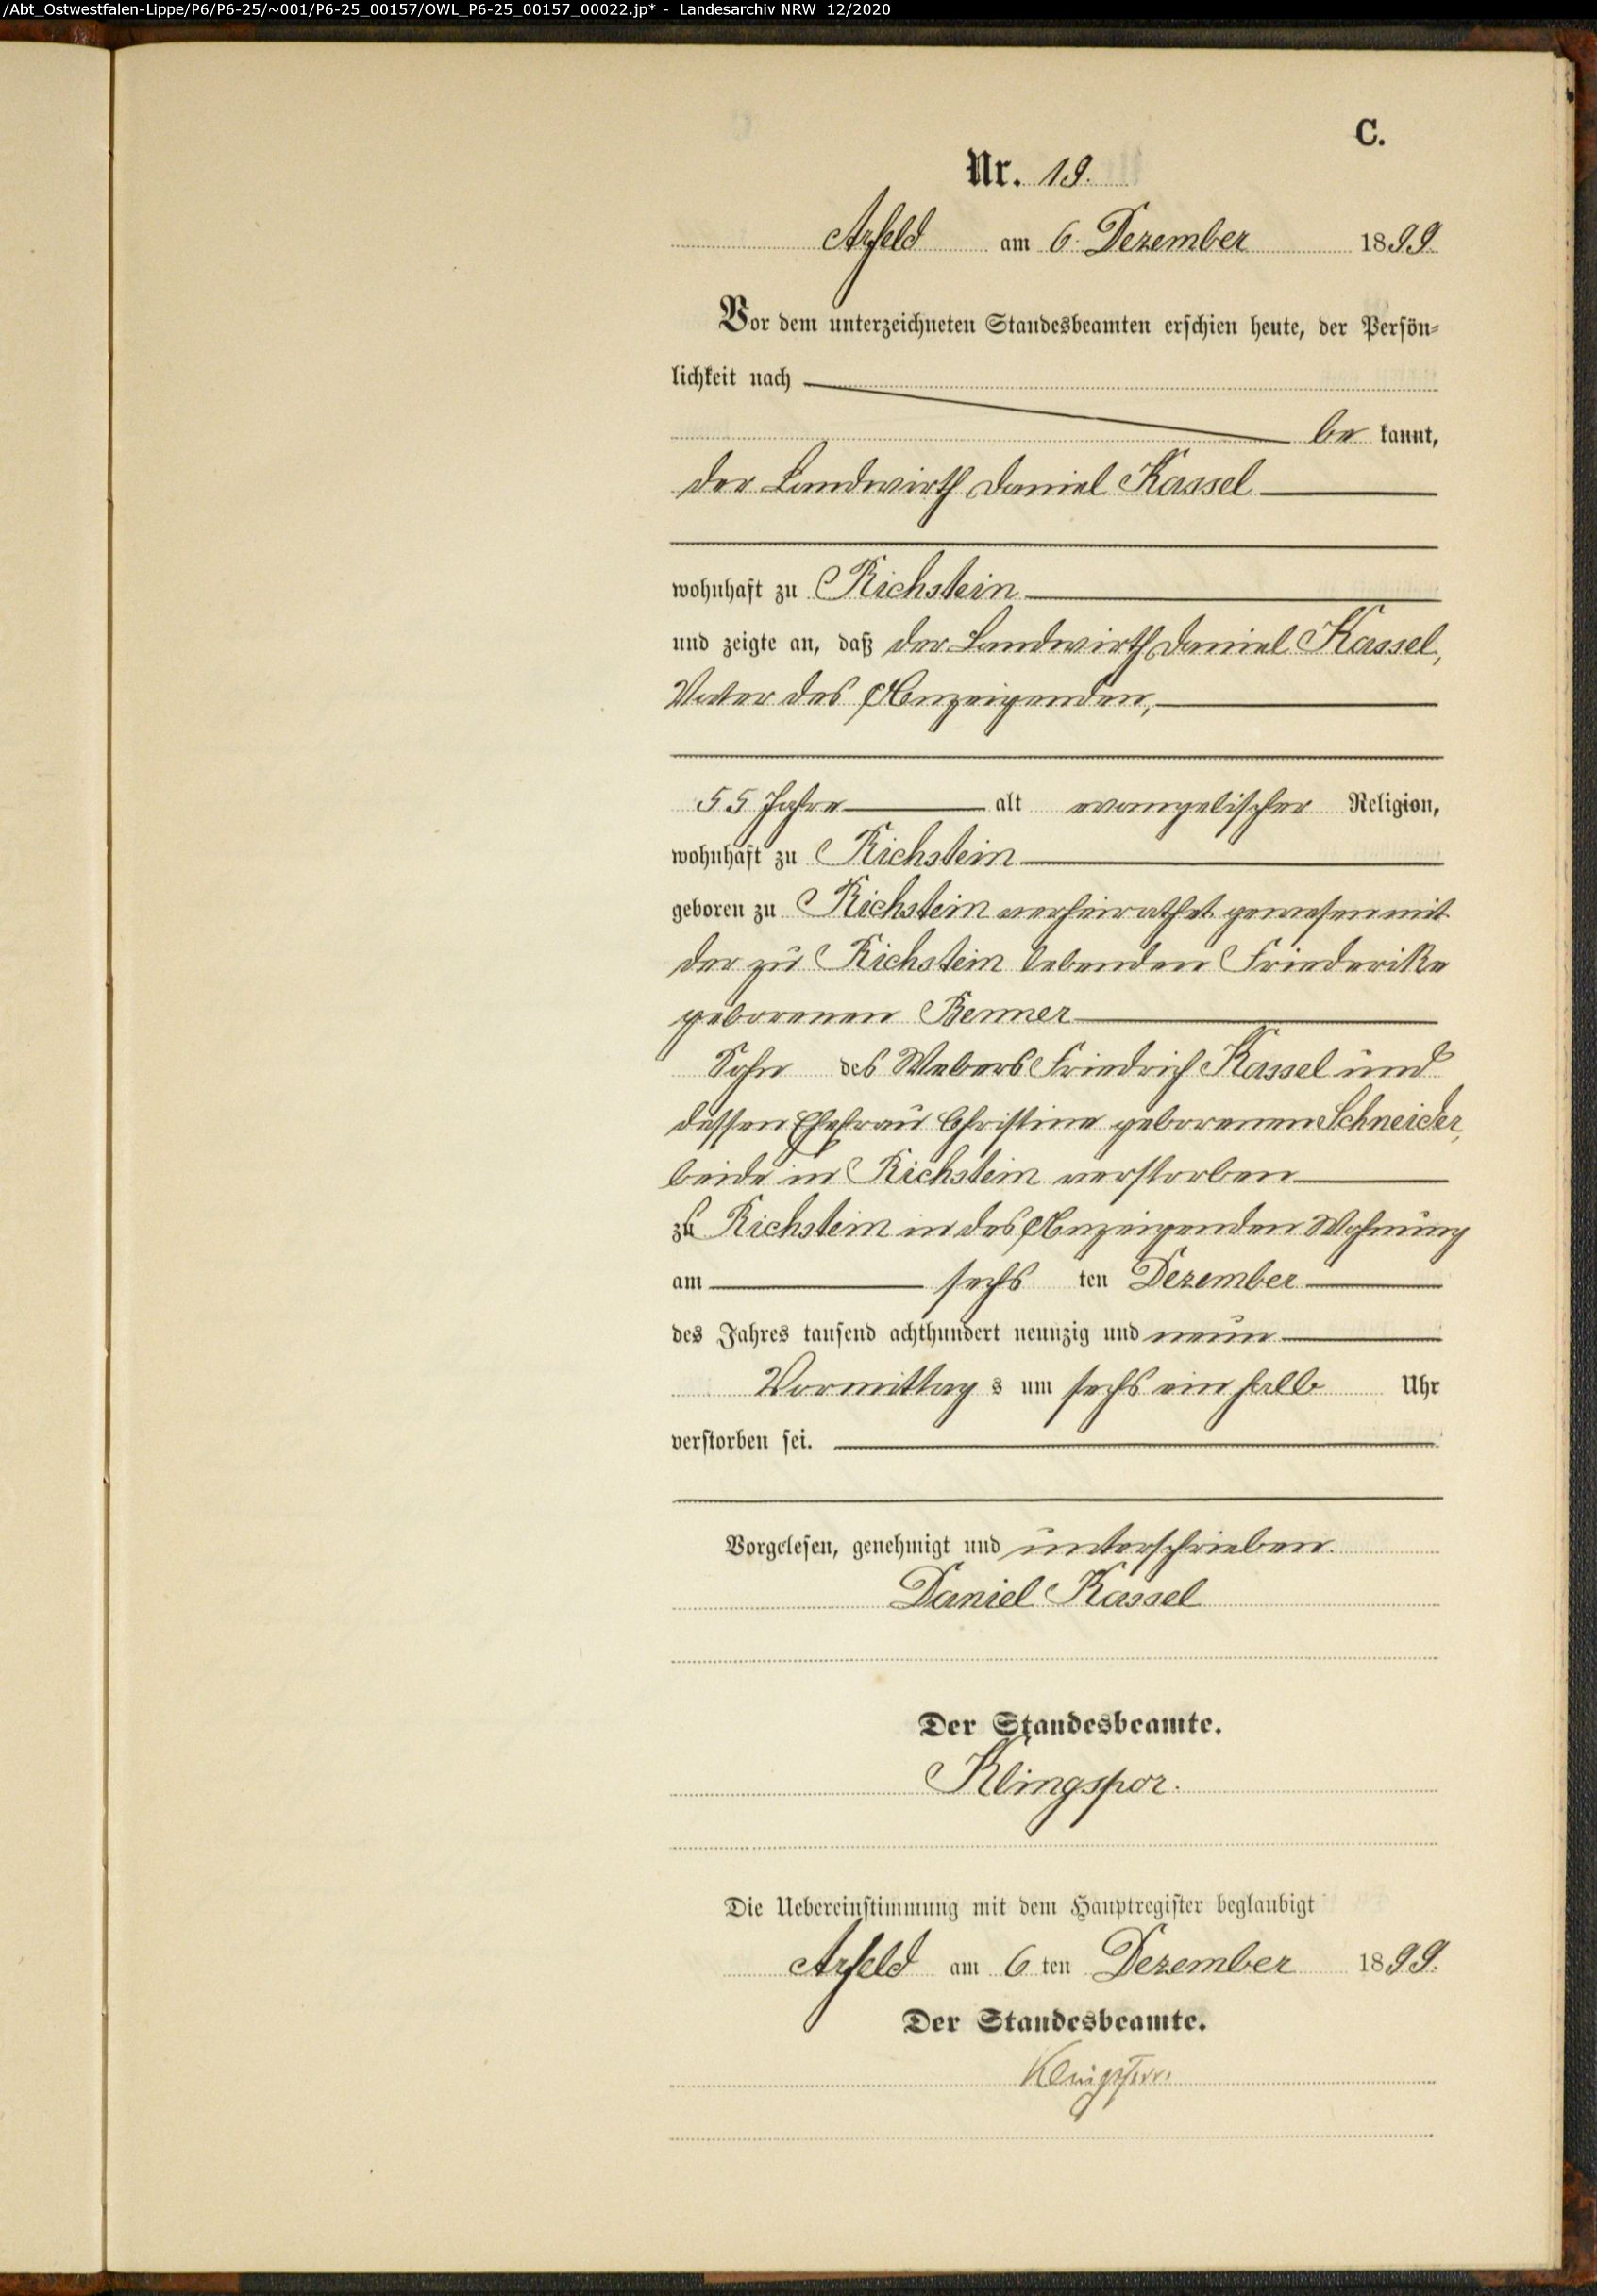 /Abt_Ostwestfalen-Lippe/P6/P6-25/~001/P6-25_00157/OWL_P6-25_00157_00022.jp* - Landesarchiv NRW 12/2020
C.
Nr. 19.
Arfeld am 6. Dezember 1899.
Vor dem unterzeichneten Standesbeamten erschien heute, der Persön-
lichkeit nach
be kannt,
der Landwirth Daniel Kassel
wohnhaft zu Richstein
und zeigte an, daß der Landwirth Daniel Kassel,
Vater des Anzeigenden,
55 Jahre alt evangelischer Religion,
wohnhaft zu Richstein
geboren zu Richstein verheirathet gewesen mit
der zu Richstein lebenden Friederike
geborenen Benner
Sohn des Webers Friedrich Kassel und
dessen Ehefrau Christine geborenen Schneider,
beide in Richstein verstorben
zu Richstein in des Anzeigenden Wohnung
am sechs ten Dezember
des Jahres tausend achthundert neunzig und neun
Vormittag s um sechs ein halb Uhr
verstorben sei.
Vorgelesen, genehmigt und unterschrieben.
Daniel Kassel
Der Standesbeamte.
Klingspor.
Die Uebereinstimmung mit dem Hauptregister beglaubigt
Arfeld am 6 ten Dezember 1899.
Der Standesbeamte.
Klingspor.